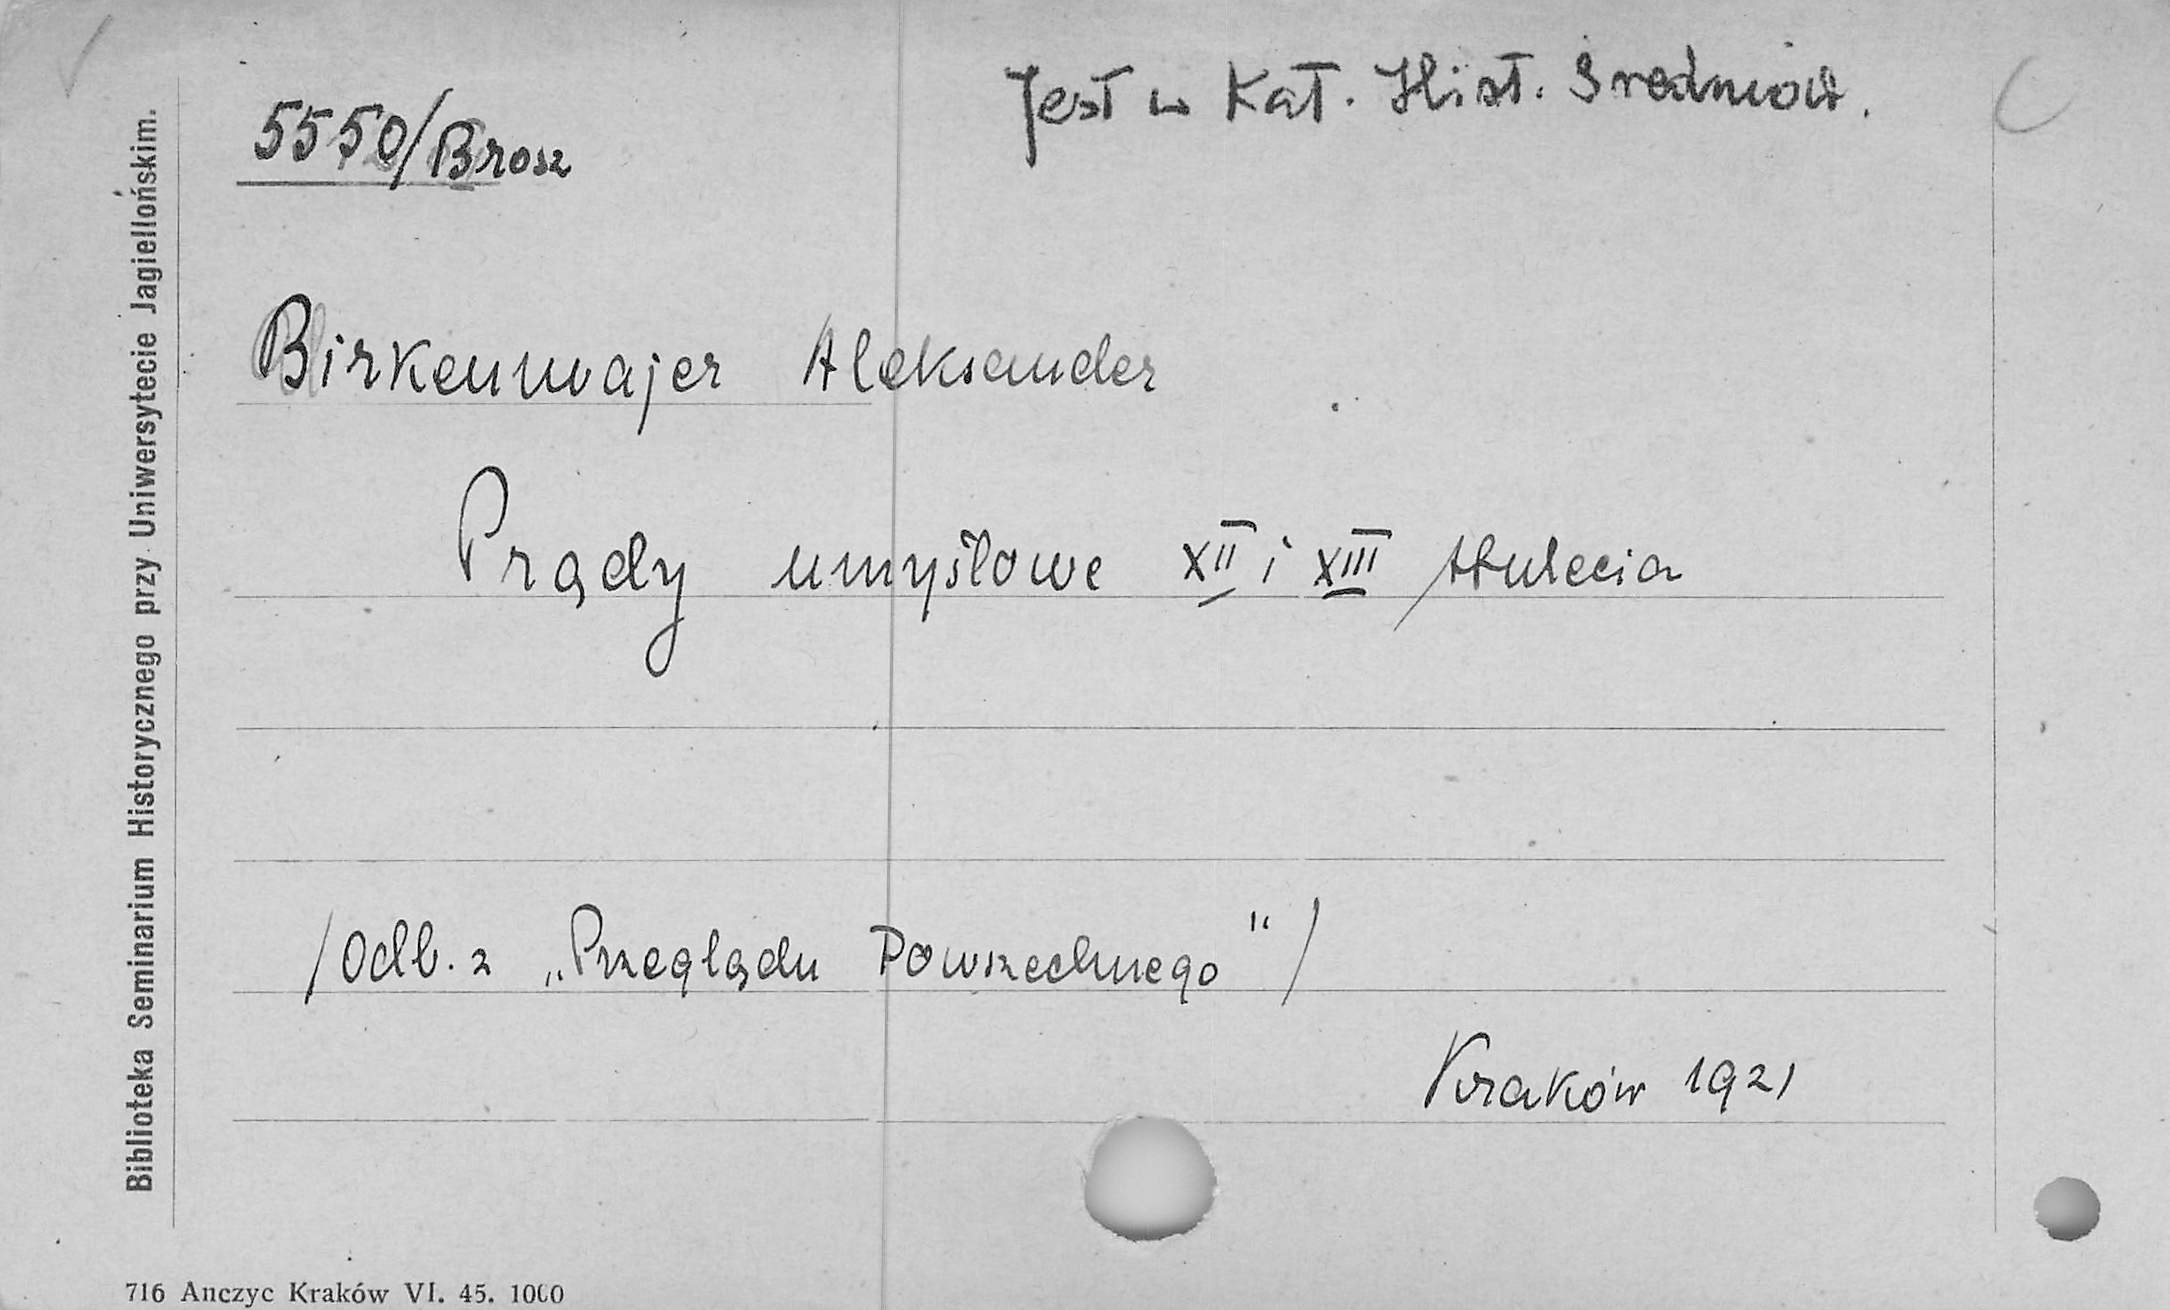 Jest w Kat. Hist. Średniow.
5550/Brosz
Birkenmajer Aleksander
Prądy umysłowe XII i XIII stulecia
/Odb. z „Przeglądu Powszechnego"/
Kraków 1921
Biblioteka Seminarium Historycznego przy Uniwersytecie Jagiellońskim.
716 Anczyc Kraków VI. 45. 1000